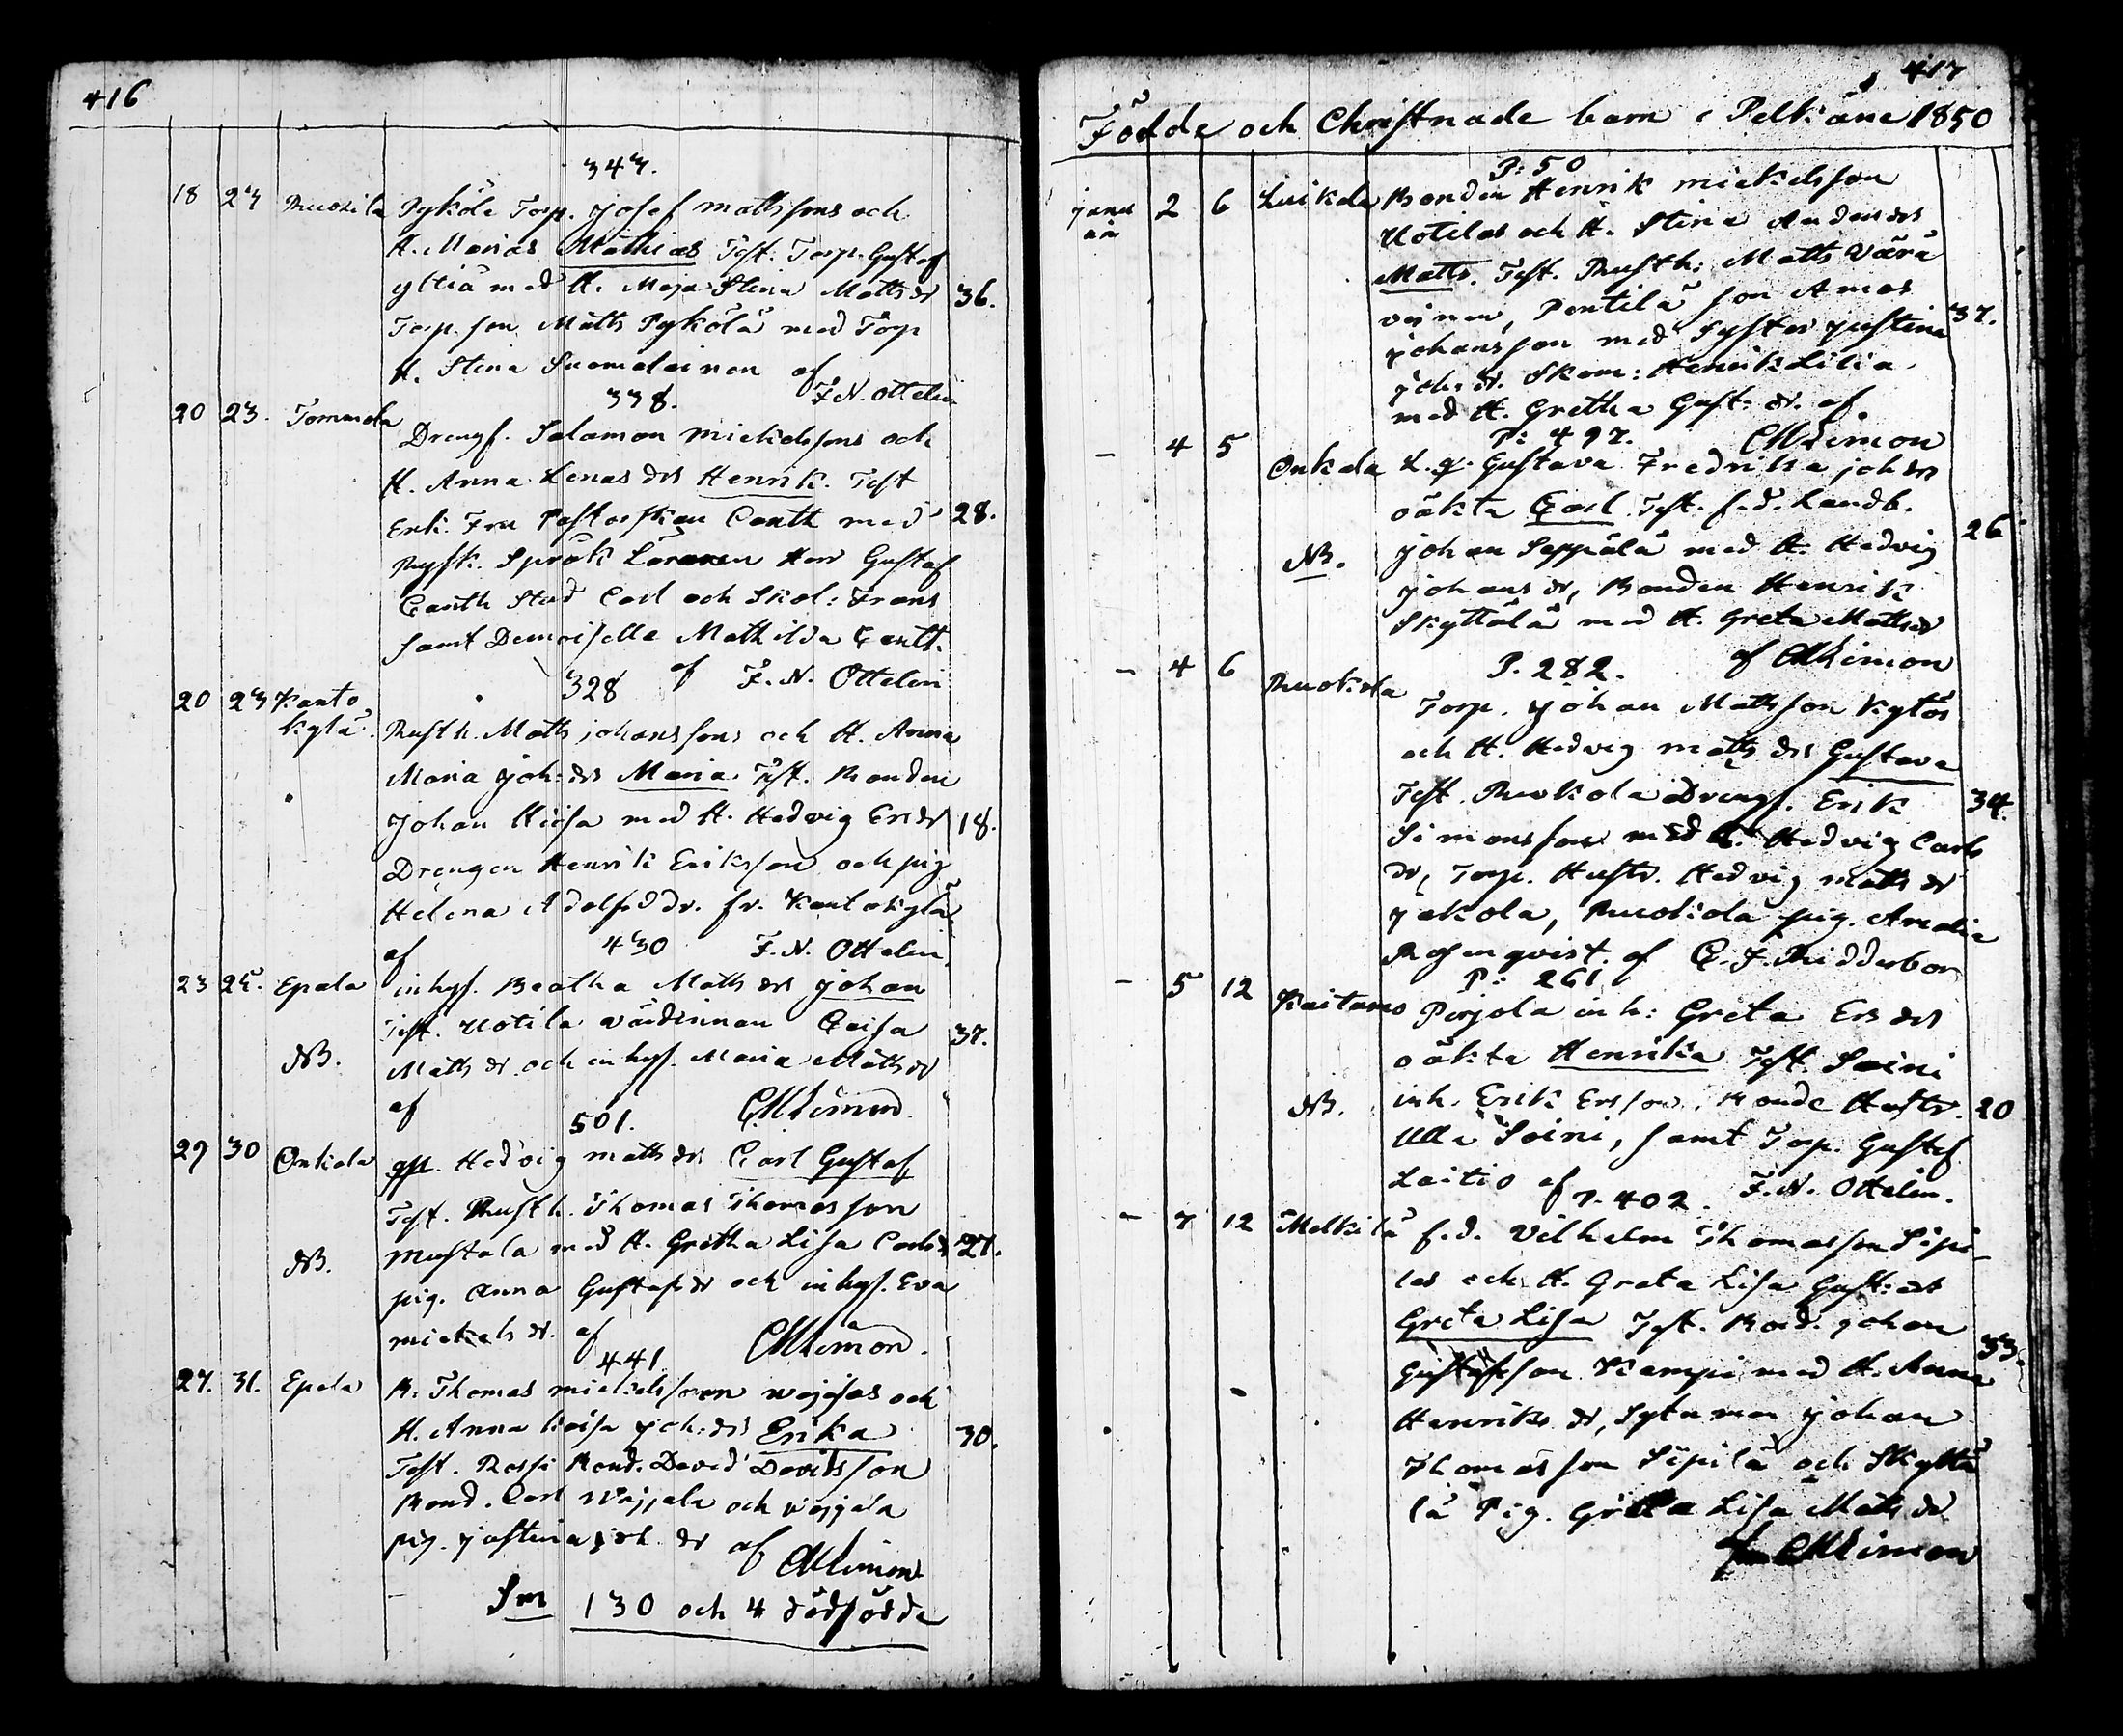 416
343.
18 23 Ruokila Pyköle Torp. Josef Mattssons och
H. Marias Mathias Test. Torp. Gustaf
med H. Maja Stina Matts dr 36.
Torp. son Matts Pykölä med Torp
H. Stina Suomalainen af F. N. Ottelin
338.
20 23. Tommola
Drengf. Salomon Mickelssons och
H. Anna Lenas drs Henrik. Test
Enk. Fru Pastorskan Canth med 28.
Rysk. Språk Läraren Herr Gustaf
Canth Stud Carl och Skol: Frans
samt Demoiselle Mathilda Canth.
af F. N. Ottelin
328
20 23 Kanto
kylä. Rusth. Matts Johanssons och H. Anna
Maria Joh: drs Maria. Test. Bonden
Johan Hiisa med H. Hedvig Ers dr 18.
Drengen Henrik Eriksson och pig
Helena Adolfs dr. fr. Kantokylä
af F. N. Ottelin.
430
23 25. Epala inhys. Beatha Matts drs Johan
Test. Uotila värdinnan Caisa 37.
NB. Matts dr och inhys. Maria Matts dr
af CMLimon
501.
29 30 Onkala Hedvig Matts drs Carl Gustaf
Test. Rusth. Thomas Thomasson
Mustala med H. Gretha Lisa Carls dr 27.
NB.
pig. Anna Gustafs dr och inhys. Eva
Mickels dr. af CMLimon.
441
27. 31. Epala B. Thomas Mickelsson och
H. Anna Caisa Joh: drs Erika 30.
Test. Rossi Bond. David Davidsson
Bond. Carl Wajjala och Wajjala
pig. Justina Joh. dr af CMLimon
Sm 130 och 4 dödfödde
417
Födde och Christnade barn i Pelkäne 1850
P: 50
janu
ari 2 6 Luikala Bonden Henrik Mickelsson
Uotilas och H. Stina Anders drs
Matts. Test. Rusth: Matts
Pentilä son Amos 37.
Johansson med Syster Justina
Joh: dr. Skom: Henrik Lilia
med H. Gretha Gust: dr. af.
CMLimon
P: 497.
- 4 5 Onkala Gustava Fredrika Joh drs
oäkta Carl. Test. f.d. Landb. 26
NB. Johan Seppälä med H. Hedvig
Johans dr, Bonden Henrik
Skyttälä med H. Greta Matts dr
af CMLimon
P. 282.
- 4 6 Ruokola
Torp. Johan Mattsson Kytös
och H. Hedvig Matts drs Gustava
Test. Ruokola Drengf. Erik 34.
Simonsson med H. Hedvig Carls
dr, Torp. Hustr. Hedvig Matts dr
Jakola, Ruokola pig. Amalia
Rosenqvist. af C. J. Ridderbor
P: 261
- 5 12 Kaitamo Pirjola inh: Greta Ers drs
oäkta Henrika Test. Soini
NB. inh. Erik Ersson, Bonde Hustr. 20
Ulla Soini, samt Torp. Gustaf
Laitio af F. N. Ottelin.
P. 402.
- 7 12 Melkilä f.d. Vilhelm Thomasson Sipi-
las och H. Greta Lisa Gust: drs
Greta Lisa Test. Bond. Johan 33.
Gustafsson Kampi med H. Anna
Henriks dr, Sytning Johan
Thomasson Sipilä och Skyttä
lä Pig. Greta Lisa Matts dr
CMLimon